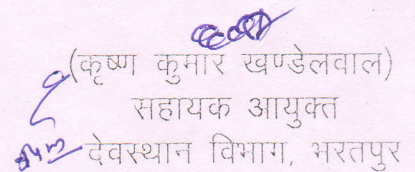 (कृष्ण कुमार खण्डेलवाल)
सहायक आयुक्त
देवस्थान विभाग, भरतपुर